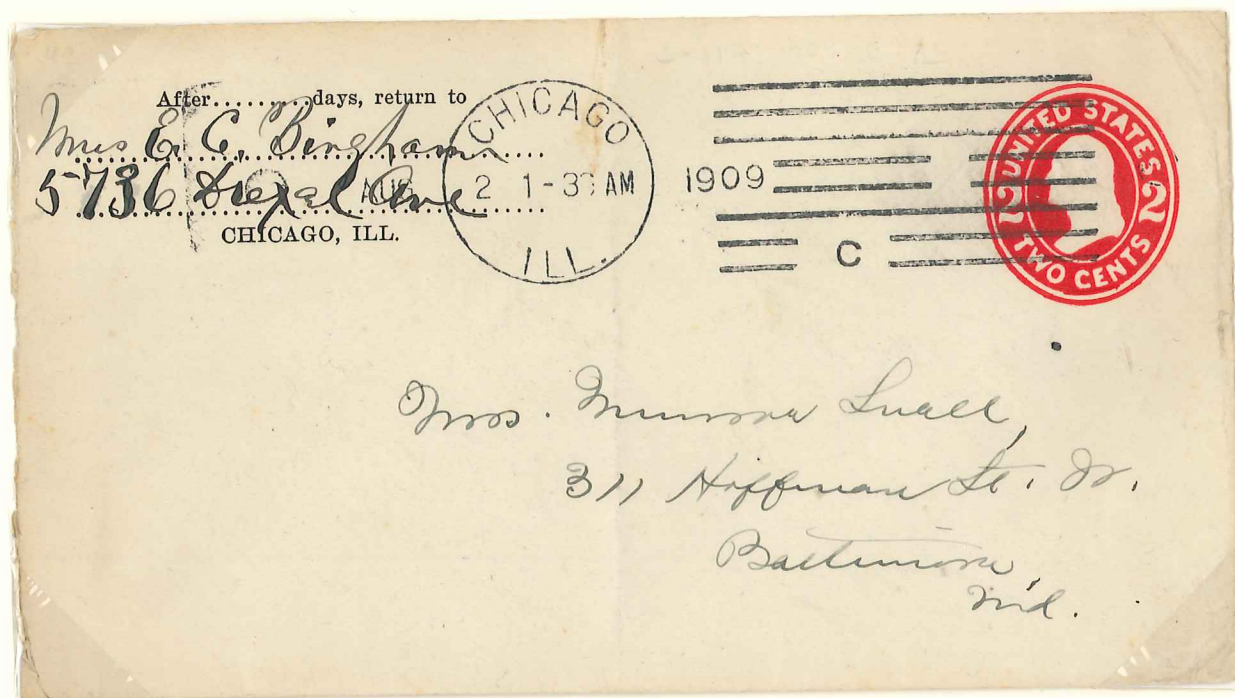 After..........days, return to
Mrs E. C. Bingham
5736 Drexal Ave
CHICAGO, ILL.
CHICAGO
AUG 2 1-3 AM
ILL.
1909
C
UNITED STATES
2 2
TWO CENTS
Mrs. Snall,
311 Hoffman St. W.
Baltimore,
Md.